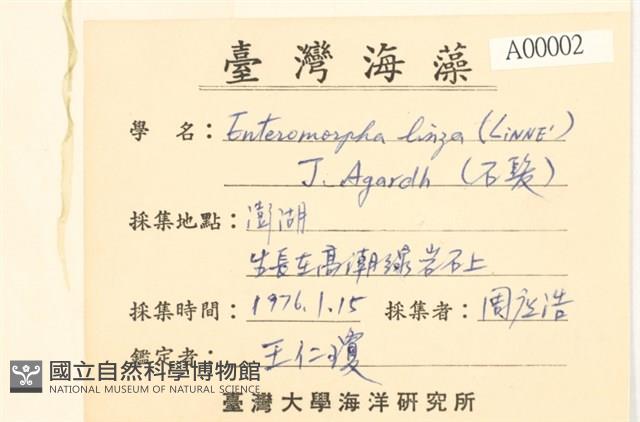 A00002
臺灣海藻
學 名：Enteromorpha linza (LiNNE')
J. Agardh (石髮)
採集地點：澎湖
生長在高潮線岩石上
採集時間：1976.1.15 採集者：周 浩
鑑定者：王仁瓊
國立自然科學博物館
NATIONAL MUSEUM OF NATURAL SCIENCE
臺灣大學海洋研究所